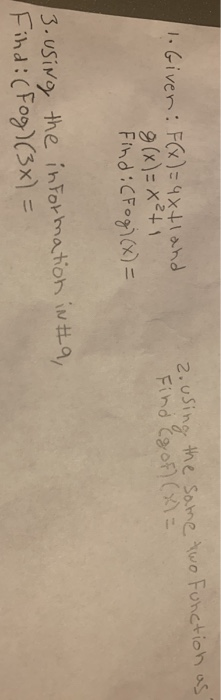 1. Given: F(x) = 4x+1 and
g(x) = x²+1
Find: (Fog)(x) =
2. using the same two function as
Find (gof)(x) =
3. using the information in #9,
Find: (Fog)(3x) =